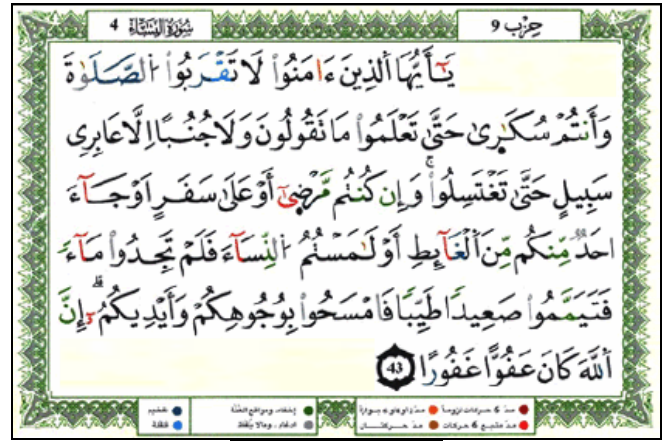 سُورَةُ النِّسَاءِ 4
حِزْب 9
يَـٰٓأَيُّهَا ٱلذِينَ ءَامَنُواْ لَا تَقْرَبُواْ ٱلصَّلَوٰةَ
وَأَنتُمْ سُكَـٰرِىٰ حَتَّىٰ تَعْلَمُواْ مَا تَقُولُونَ وَلَا جُنُبًا اِلَّا عَابِرِى
سَبِيلٍ حَتَّىٰ تَغْتَسِلُواْ وَإِن كُنتُم مَّرْضِىٰٓ أَوْ عَلَىٰ سَفَرٍ اَوْ جَآءَ
احَدٌ مِّنكُم مِّنَ ٱلْغَآئِطِ أَوْ لَـٰمَسْتُمُ ٱلنِّسَآءَ فَلَمْ تَجِدُواْ مَآءً
فَتَيَمَّمُواْ صَعِيدًا طَيِّبًا فَامْسَحُواْ بِوُجُوهِكُمْ وَأَيْدِيكُمُۥٓ إِنَّ
ٱللَّهَ كَانَ عَفُوًّا غَفُورًا 43
مدّ 6 حركات لزوماً مدّ 2 أو 4 أو 6 جوازاً إخفاء، ومواقع الغُنَّة تفخيم
مدّ مشبع 6 حركات مدّ حركتان إدغام، وما لا يُلفظ قلقلة